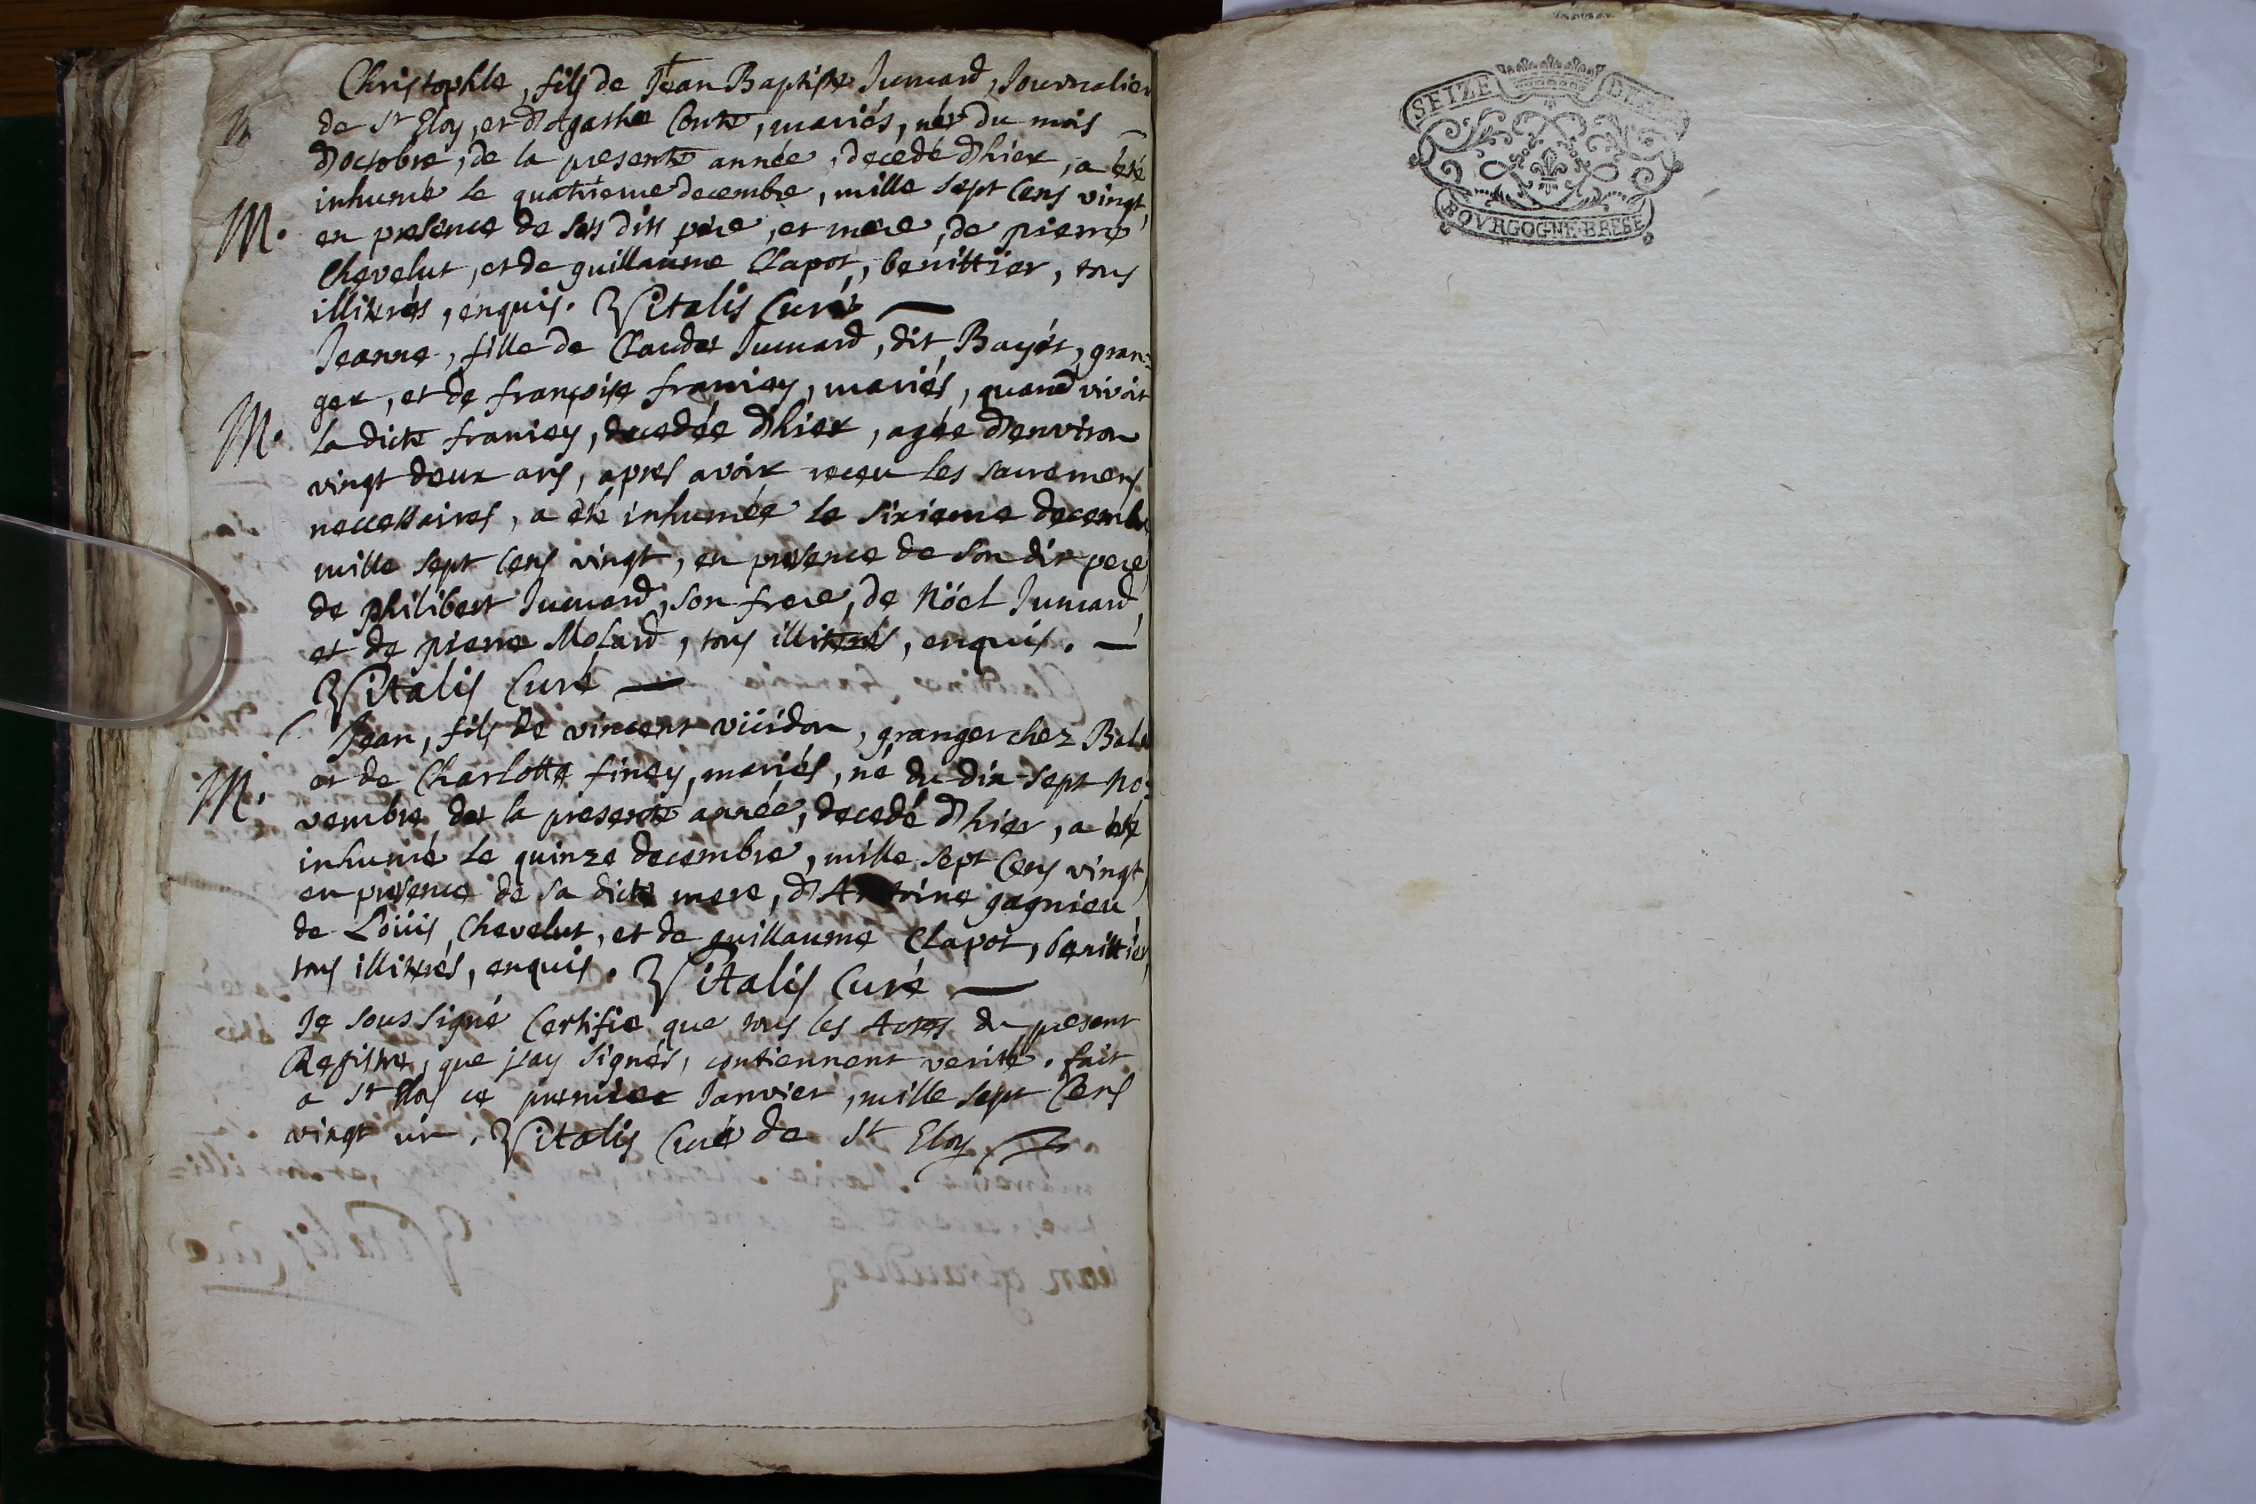 Christophle, fils de Jean Baptiste Jumard, Journalier
de St Eloy, et d'Agathe Conte, mariés, né du mois
d'octobre, de la presente année, decédé d'hier, a été
inhumé le quatrieme decembre, mille sept cens vingt,
M.
en presence de ses dits père, et mere, de pierre
Chevelut, et de guillaume Clapot, benittier, tous
illiterés, enquis. Vitalis Curé
Jeanne, fille de Claude Jumard, dit Bayét, gran=
ger, et de françoise franiey, mariés, quand vivoit
M.
la dicte franiey, decedée d'hier, agée d'environ
vingt deux ans, apres avoir reçeu les sacremens
necessaires, a été inhumée le sixieme decembre
mille sept cens vingt, en presence de son dit pere,
de philibert Jumard, son frere, de Nöel Jumard,
et de pierre Molard, tous illiterés, enquis.
Vitalis Curé
Jean, fils de vincent vüidon, granger chez
et de Charlotte finey, mariés, né du dix-sept no=
M.
vembre de la presente année, decedé d'hier, a été
inhumé le quinze decembre, mille sept cens vingt,
en presence de sa dicte mere, d'Antoine gagnieu,
de Löüis Chevelut, et de guillaume Clapot, benittier,
tous illiterés, enquis. Vitalis Curé
Je sous signé Certifie que tous les Actes du present
Registre, que j'ay signés, contiennent verité. fait
a St Eloy ce premier Janvier, mille sept Cens
vingt un. Vitalis Curé de St Eloy
SEIZE DEN
BOVRGOGNE BRESE